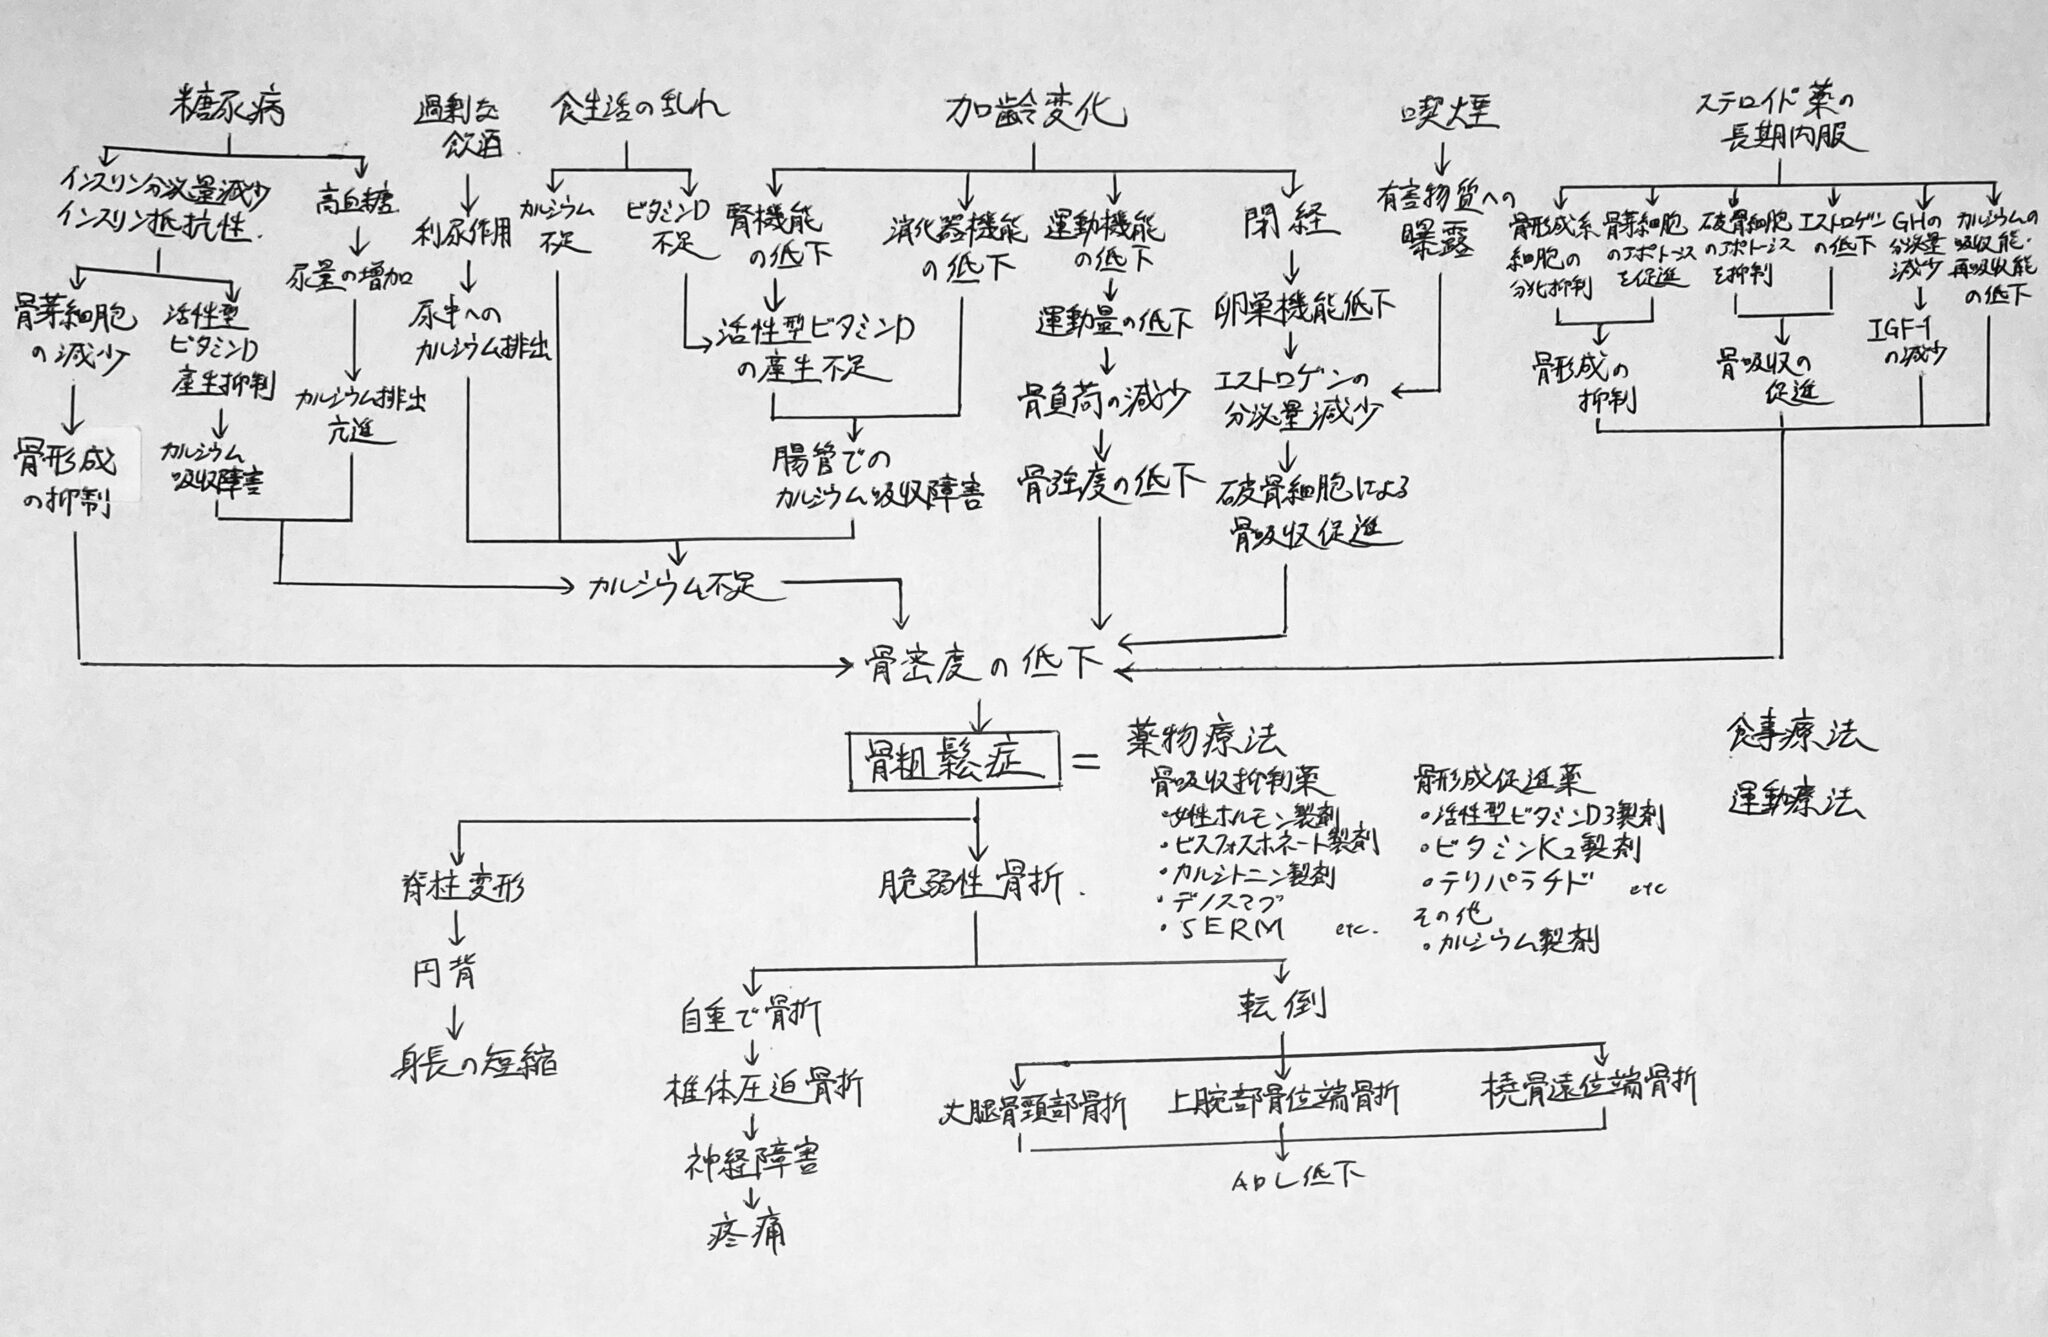 糖尿病
インスリン分泌量減少
インスリン抵抗性.
骨芽細胞
の減少
骨形成
の抑制
活性型
ビタミンD
産生抑制
カルシウム
吸収障害
高血糖
尿量の増加
カルシウム排出
亢進
過剰な
飲酒
利尿作用
尿中への
カルシウム排出
食生活の乱れ
カルシウム
不足
ビタミンD
不足
加齢変化
腎機能
の低下
活性型ビタミンD
の産生不足
消化器機能
の低下
腸管での
カルシウム吸収障害
カルシウム不足
運動機能
の低下
運動量の低下
骨負荷の減少
骨強度の低下
閉経
卵巣機能低下
エストロゲンの
分泌量減少
破骨細胞による
骨吸収促進
喫煙
有害物質への
曝露
ステロイド薬の
長期内服
骨形成系
細胞の
分化抑制
骨芽細胞
のアポトーシス
を促進
骨形成の
抑制
破骨細胞
のアポトーシス
を抑制
エストロゲン
の低下
骨吸収の
促進
GHの
分泌量
減少
IGF-1
の減少
カルシウムの
吸収能・
再吸収能
の低下
骨密度の低下
骨粗鬆症 =
薬物療法
骨吸収抑制薬
・女性ホルモン製剤
・ビスフォスホネート製剤
・カルシトニン製剤
・デノスマブ
・SERM etc.
骨形成促進薬
・活性型ビタミンD3製剤
・ビタミンK2製剤
・テリパラチド etc
その他
・カルシウム製剤
食事療法
運動療法
脊柱変形
円背
身長の短縮
脆弱性骨折.
自重で骨折
椎体圧迫骨折
神経障害
疼痛
転倒
大腿骨頸部骨折
上腕部骨位端骨折
橈骨遠位端骨折
ADL低下